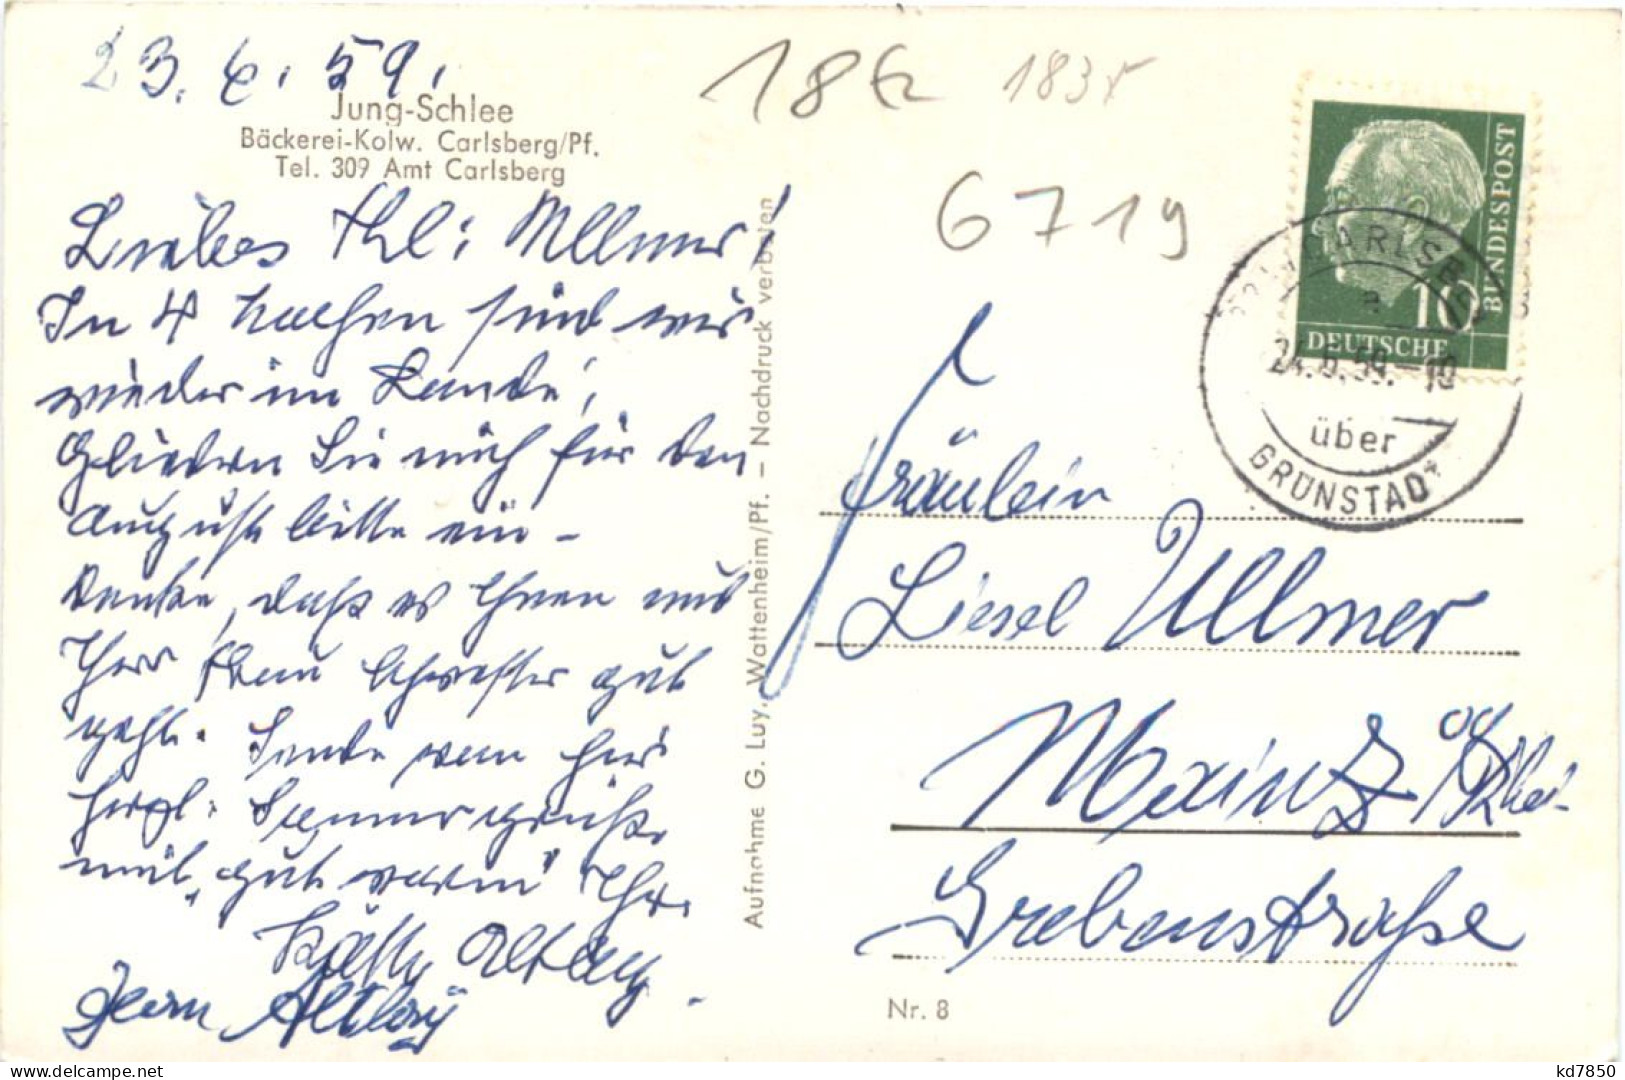 23. 6. 59.
Jung-Schlee
Bäckerei-Kolw. Carlsberg/Pf.
Tel. 309 Amt Carlsberg
Liebes Frl: Ullmer!
In 4 Wochen sind wir
wieder im Lande,
Gliedern Sie mich für den
August bitte ein –
Denke, daß es Ihnen und
Ihrer Frau Schwester gut
geht. Sende von hier
herzl. Sommergrüße
mit gut warm Ihr.
Käthe
Aufnahme G. Luy, Wattenheim/Pf. – Nachdruck verboten
18 Er 183r
6719
DEUTSCHE
BUNDESPOST
10
CARLSB
24.6.59.-10
über
GRÜNSTADT
Fräulein
Liesel Ullmer
Mainz
Grabenstraße
Nr. 8
kd7850